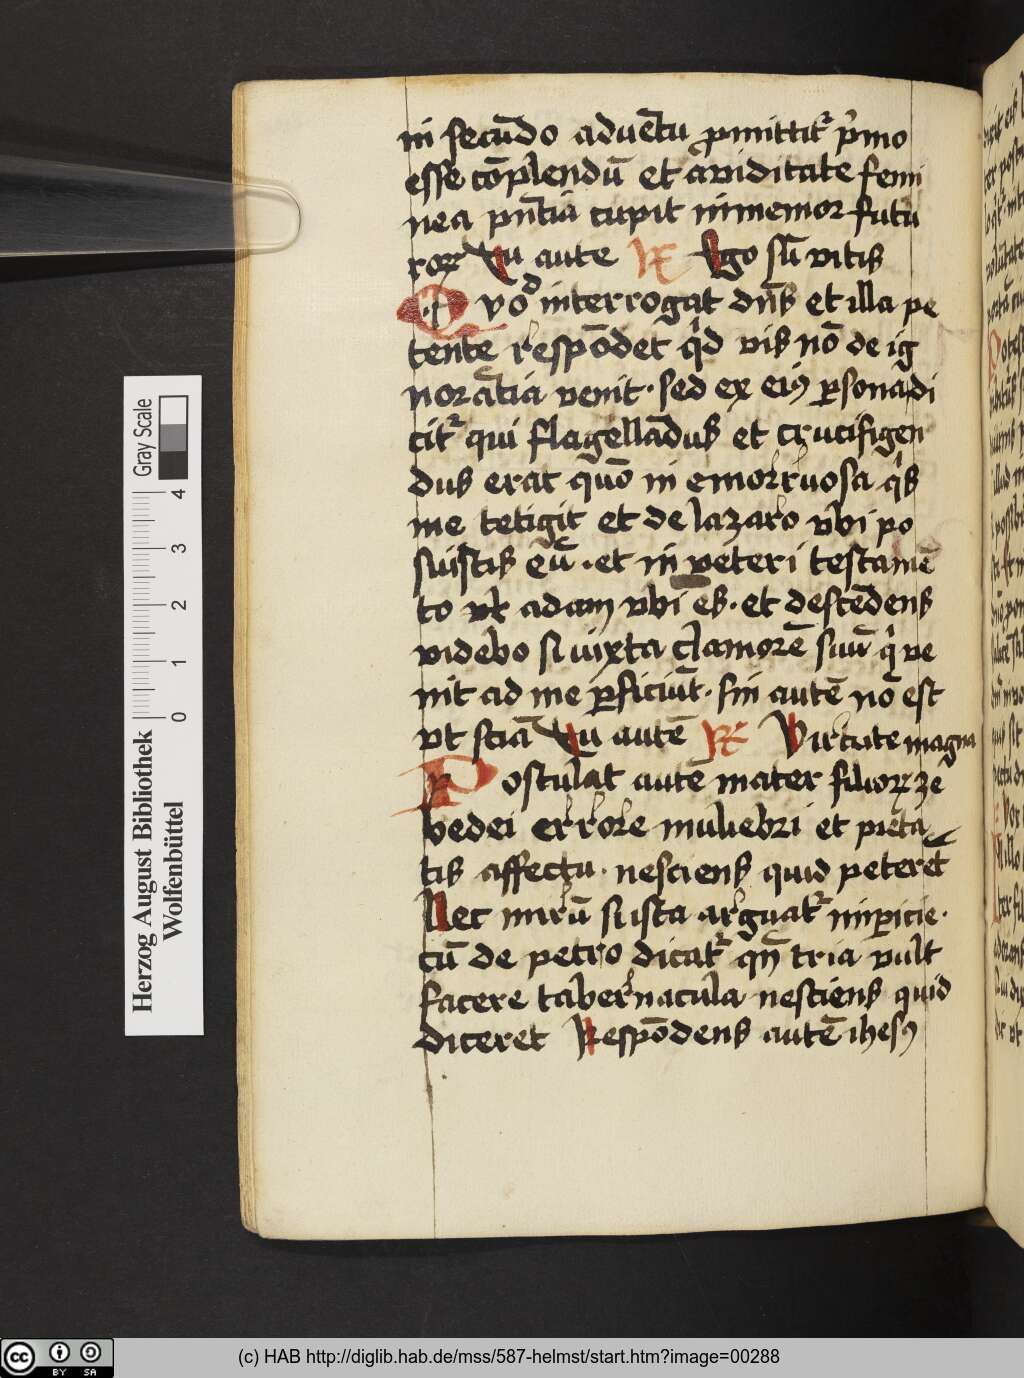 in secūdo aduētu ꝓmittit᷑ p̓mo
esse cōplendū et auiditate femi
nea pn̄tia cupit inmemor futu
roꝝ Tu aute ꝶ Ego sū vitis
Qvod interrogat dn̄s et illa pe
tente respōdet qͥd vis nō de ig
norātia venit · sed ex eiꝰ ꝑsona di
cit᷑ qui flagellādus et crucifigen
dus erat quō in emorruosa qͥs
me tetigit et de lazaro vbi po
suistis eū · et in veteri testamē
to vt adam vbi es · et descēdens
videbo si iuxta clamorē suū qͥ ve
nit ad me ꝑficiūt · sin autē nō est
vt sciā Tu autē ꝶ Virtute magna
Postulat autē mater filioꝝ ze
bedei errore muliebri et pieta
tis affectu · nesciens quid peteret
Nec mirū si ista arguat᷑ inꝑicie ·
cū de petro dicat᷑ qn̄ tria vult
facere tabernacula nesciens quid
diceret Respōdens autē ihesꝰ
Herzog August Bibliothek
Wolfenbüttel
Gray Scale
0 1 2 3 4
cc BY SA
(c) HAB http://diglib.hab.de/mss/587-helmst/start.htm?image=00288